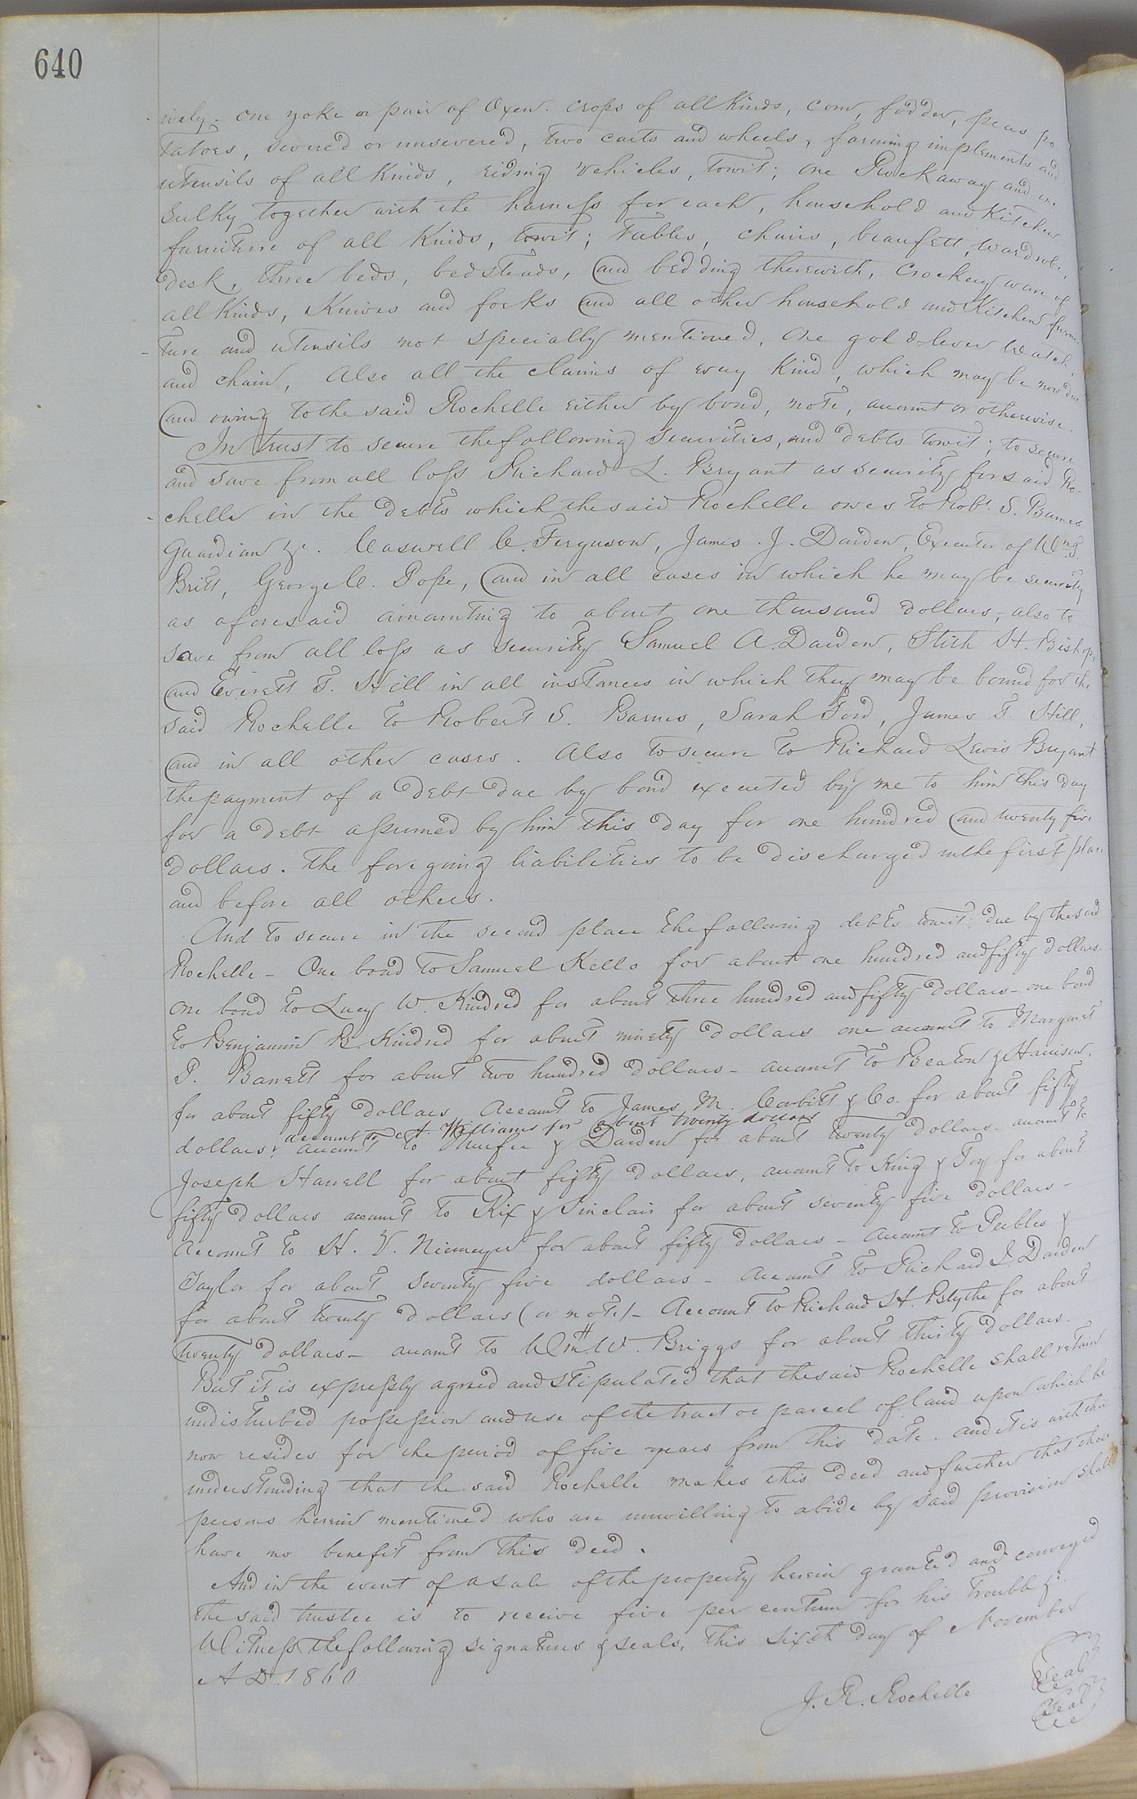 640
ively - one yoke or pair of Oxen. crops of all kinds, corn, fodder, peas po
tatoes, severed or unsevered, two carts and wheels, farming implements and
utensils of all kinds, riding vehicles, towit; one Rockaway and one
Sulky together with the harness for each, household and Kitchen
furniture of all kinds, towit; Tables, chairs, beaufett, wardrobe,
desk, three beds, bedsteads, and bedding therewith, crockery ware of
all kinds, Knives and forks and all other household and Kitchen furni
ture and utensils not specially mentioned, One gold lever watch
and chain, Also all the claims of every kind, which may be now due
and owing to the said Rochelle either by bond, note, account or otherwise.
In trust to secure the following securities, and debts towit; to secure
and save from all loss Richard L. Bryant as security for said Ro-
chelle in the debts which the said Rochelle owes to Robt. S. Barnes
Guardian &c. Caswell C. Ferguson, James J. Darden, Executor of Wm. S
Britt, George C. Pope, and in all cases in which he may be security
as aforesaid amounting to about one thousand dollars, also to
save from all loss as security Samuel A. Darden, Stith H. Bishop,
and Everett T. Hill in all instances in which they may be bound for the
said Rochelle to Robert S. Barnes, Sarah Ford, James T. Hill,
and in all other cases. Also to secure to Richard Lewis Bryant
the payment of a debt due by bond executed by me to him this day
for a debt assumed by him this day for one hundred and twenty five
dollars. The foregoing liabilities to be discharged in the first place
and before all others.
And to secure in the second place the following debts towit: due by the said
Rochelle - One bond to Samuel Kello for about one hundred and fifty dollars.
One bond to Lucy W. Kindred for about three hundred and fifty dollars - one bond
to Benjamin B. Kindred for about ninety dollars one account to Margaret
P. Barrett for about two hundred dollars - account to Beaton & Harrison.
for about fifty dollars Account to James M. Corbitt & Co. for about fifty
account to A. Williams for about twenty dollars
dollars, account to & Darden for about twenty dollars - account to
Joseph Harrell for about fifty dollars, account to King & Toy for about
fifty dollars account to Rix & Sinclair for about seventy five dollars -
Account to H. V. Niemeyer for about fifty dollars - Account to Peebles &
Taylor for about seventy five dollars - Account to Richard J. Darden
for about twenty dollars (or note) - Account to Richard H. Blythe for about
twenty dollars - account to Wm. W. Briggs for about thirty dollars.
But it is expressly agreed and stipulated that the said Rochelle shall retain
undisturbed possession and use of the tract or parcel of land upon which he
now resides for the period of five years from this date. and it is with this
understanding that the said Rochelle makes this deed and further that those
persons herein mentioned who are unwilling to abide by said provision shall
have no benefit from this deed.
And in the event of a sale of the property herein granted and conveyed
the said trustee is to receive five per centum for his trouble &c.
Witness the following signatures & seals, this sixth day of November
A D. 1860
J. R. Rochelle Seal
Seal